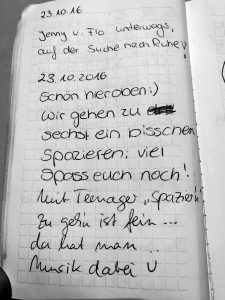 23.10.16
Jenny u. Flo unterwegs,
auf der Suche nach Ruhe!
23.10.2016
Schön hier oben :)
Wir gehen zu
sechst ein bisschen
spazieren, viel
Spass euch noch!
Mit Teenager „Spaziern"
zu gehn ist fein ...
da hat man ..
Musik dabei U